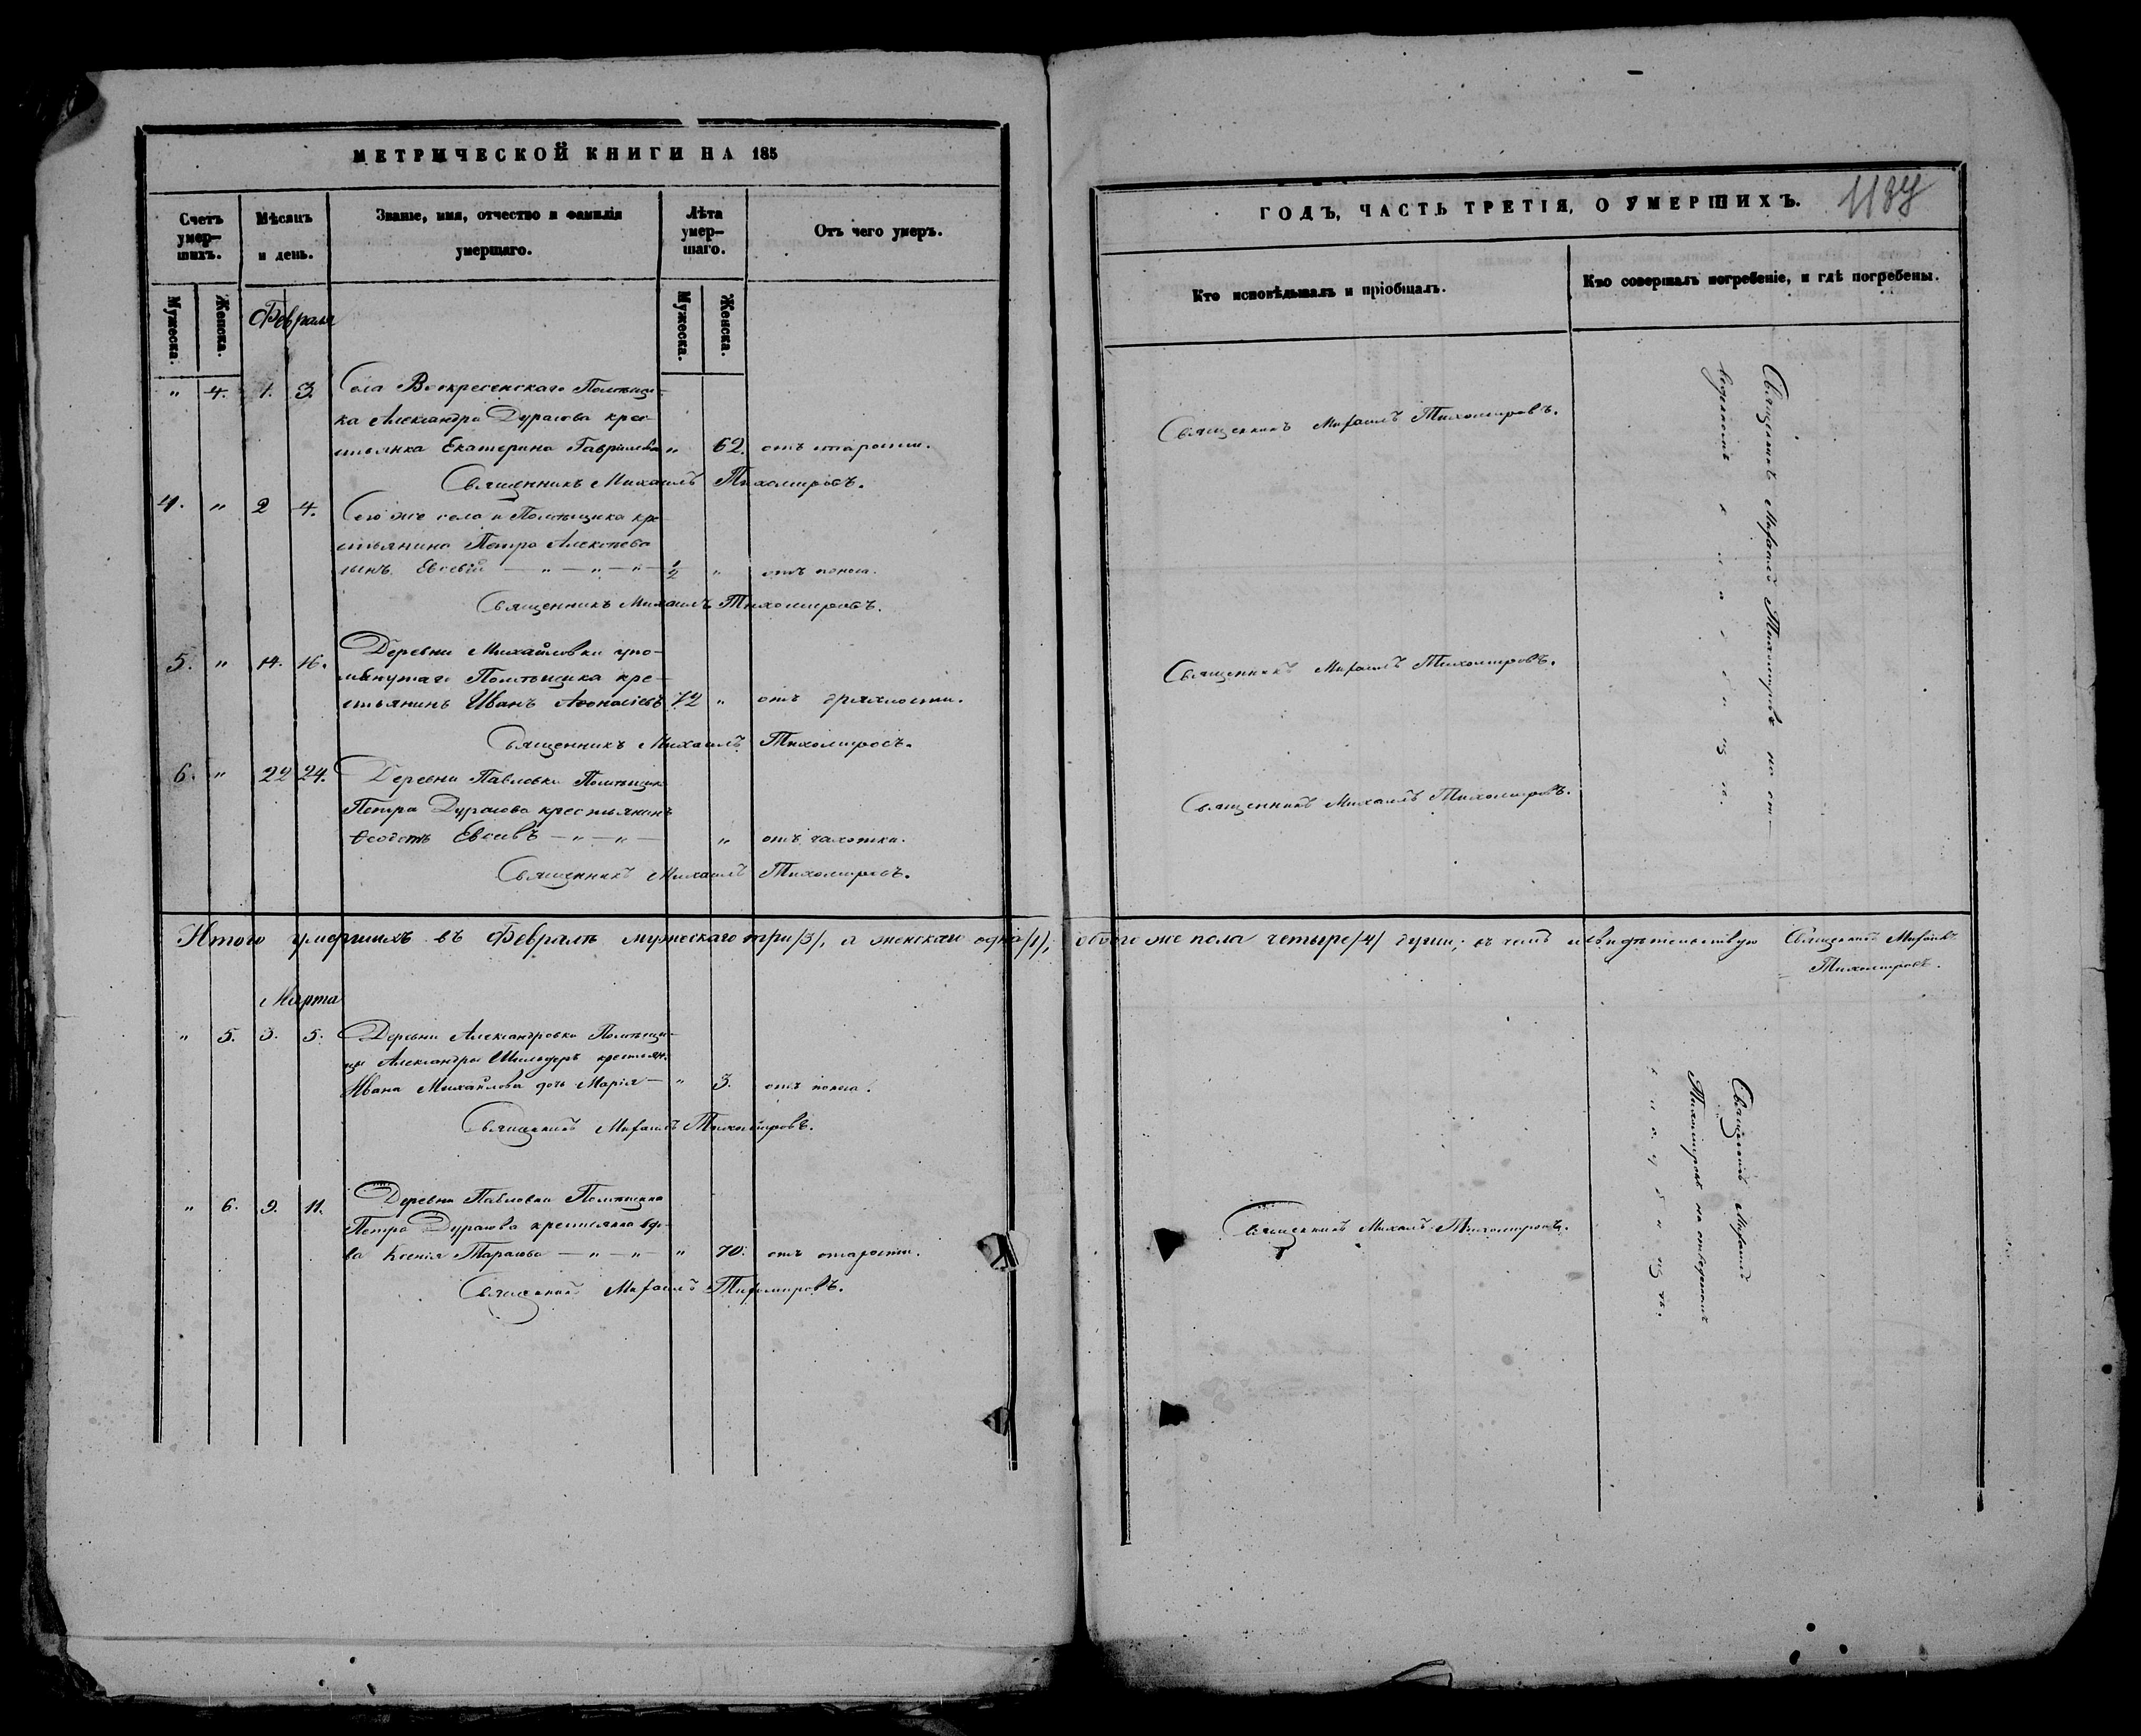 МЕТРИЧЕСКОЙ КНИГИ НА 185
Счетъ умер-шихъ.
Мѣсяцъ и день.
Званіе, имя, отчество и фамилія умершаго.
Лѣта умер-шаго.
Отъ чего умеръ.
Мужеска.
Женска.
Мужеска.
Женска.
Февраля
" 4. 1. 3. Села Воскресенскаго Помѣщи-
ка Александра Дурасова крес-
тьянка Екатерина Гаврилова " 62. отъ старости.
Священникъ Михаилъ Тихомировъ.
4. " 2 4. Сего же села и Помѣщика кре-
стьянина Петра Алексѣева
сынъ Евсевій — " — " — " — 1/2 " отъ поноса.
Священникъ Михаилъ Тихомировъ.
5. " 14. 16. Деревни Михайловки упо-
мянутаго Помѣщика кре-
стьянинъ Иванъ Аѳонасіевъ 72 " отъ дряхлости.
Священникъ Михаилъ Тихомировъ.
6. " 22 24. Деревни Павловки Помѣщика
Петра Дурасова крестьянинъ
Ѳеодотъ Евсевъ — " — " — " отъ чахотки.
Священникъ Михаилъ Тихомировъ.
Итого умершихъ въ Февралѣ мужескаго три /3/, а женскаго одна /1/,
Марта
" 5. 3. 5. Деревни Александровки Помѣщи-
цы Александры Шильдеръ крестьян.
Ивана Михайлова дочь Марія — " 3. отъ поноса.
Священникъ Михаилъ Тихомировъ.
" 6. 9. 11. Деревни Павловки Помѣщика
Петра Дурасова крестьянка вдо-
ва Ксенія Тарасова — " — " — " 70. отъ старости.
Священникъ Михаилъ Тихомировъ.
ГОДЪ, ЧАСТЬ ТРЕТІЯ, О УМЕРШИХЪ.
Кто исповѣдывалъ и пріобщалъ.
Кто совершалъ погребеніе, и гдѣ погребены.
Священникъ Михаилъ Тихомировъ.
Священникъ Михаилъ Тихомировъ.
Священникъ Михаилъ Тихомировъ.
Священникъ Михаилъ Тихомировъ на от-
веденномъ
обоего же пола четыре /4/ души; въ чемъ и свидѣтельствую Священникъ Михаилъ
Тихомировъ.
Священникъ Михаилъ Тихомировъ.
Священникъ Михаилъ
Тихомировъ на отведенномъ